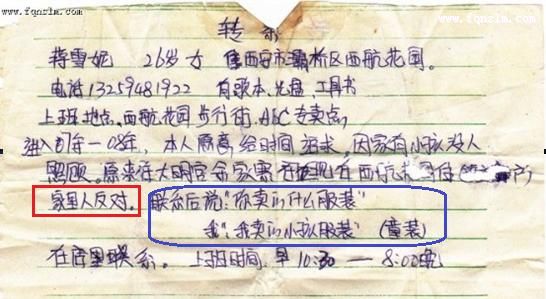 www.fqnzlm.com
www.fqnzlm.com
转
蒋雪妮 26岁 女 住西安市灞桥区西航花园。
电话13259481922 有歌本、光盘、工具书
上班地点、西航花园步行街、ABC专卖点,
进入 年-08年, 本人愿意, 给时间 追求, 因家有小孩没人
照顾。原来在大明宫 家 现在西航
家里人反对。联系后说"你卖的什么服装"
我"我卖的小孩服装" (童装)
在店里联系。上班时间、早10:30 — 8:00晚